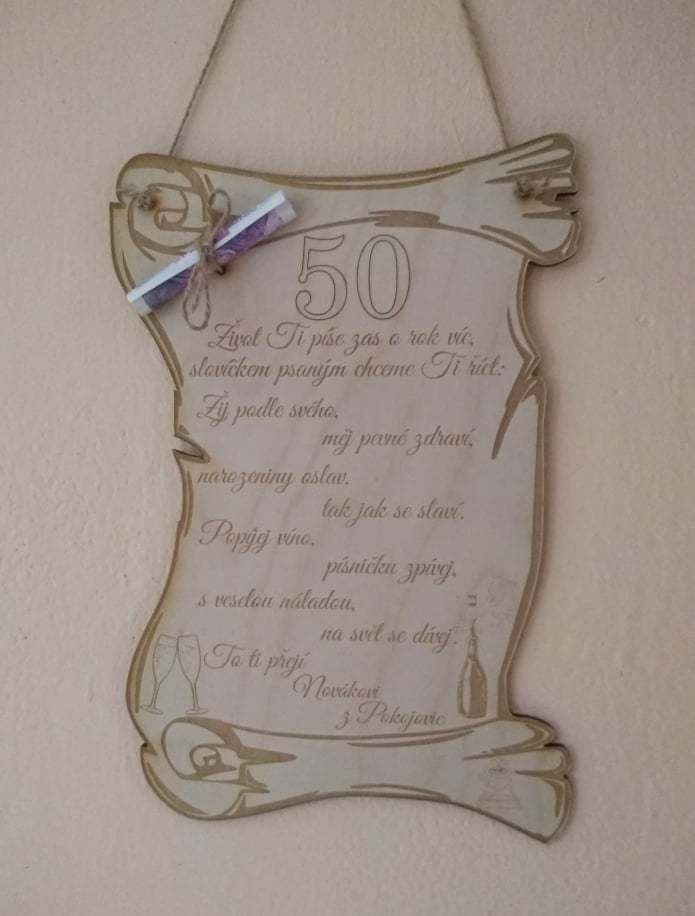 50
Život Ti píše zas o rok víc,
slovíčkem psaným chceme Ti říct:
Žij podle svého,
měj pevné zdraví,
narozeniny oslav,
tak jak se slaví.
Popíjej víno,
písničku zpívej,
s veselou náladou,
na svět se dívej.
To ti přejí
Novákovi
z Pokojovic